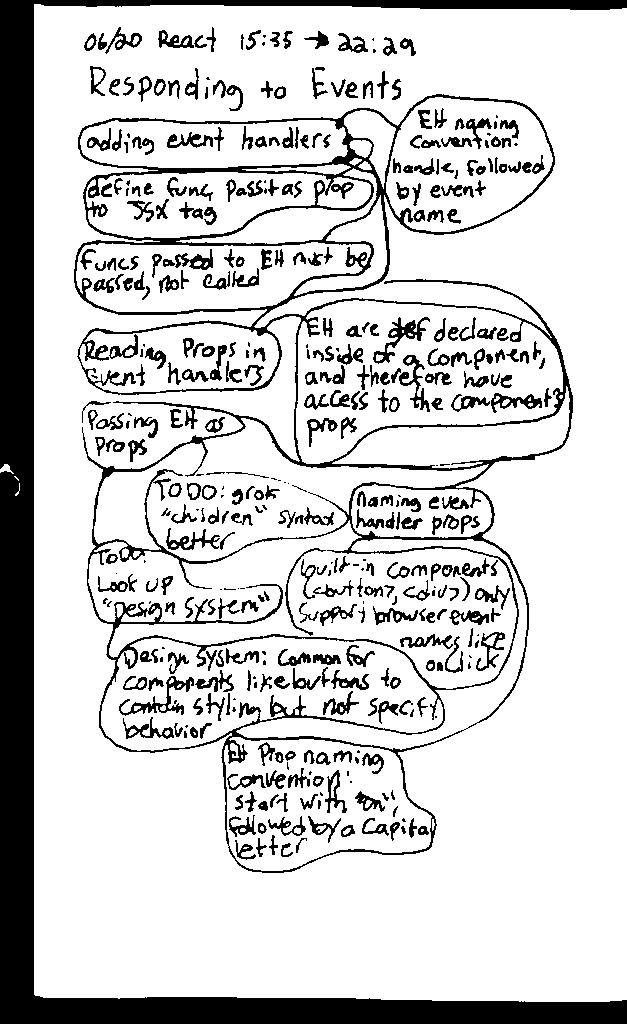 06/20 React 15:35 → 22:29
Responding to Events
adding event handlers
EH naming
convention:
handle, followed
by event
name
define func, pass it as prop
to JSX tag
Funcs passed to EH must be
passed, not called
Reading Props in
Event handlers
EH are def declared
inside of a component,
and therefore have
access to the component's
props
Passing EH as
Props
TODO: grok
"children" syntax
better
naming event
handler props
TODO:
Look up
"Design System"
built-in components
(<button>, <div>) only
support browser event
names like
onClick
Design System: Common for
components like buttons to
contain styling but not specify
behavior
EH Prop naming
convention:
start with "on",
followed by a Capital
letter